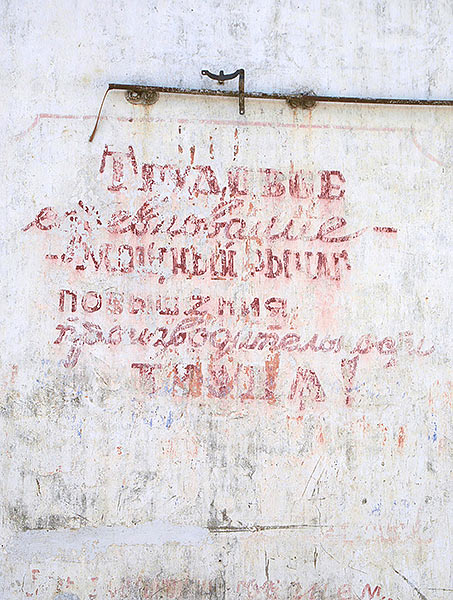 Трудовое
соревнование -
- мощный рычаг
повышения
производительности
труда!